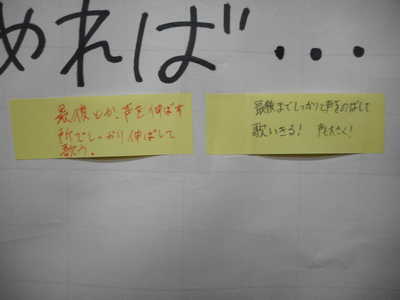 めれば…
最後とか、声を伸ばす
所でしっかり伸ばして
歌う。
最後までしっかりと声をのばして
歌いきる! 声大きく!